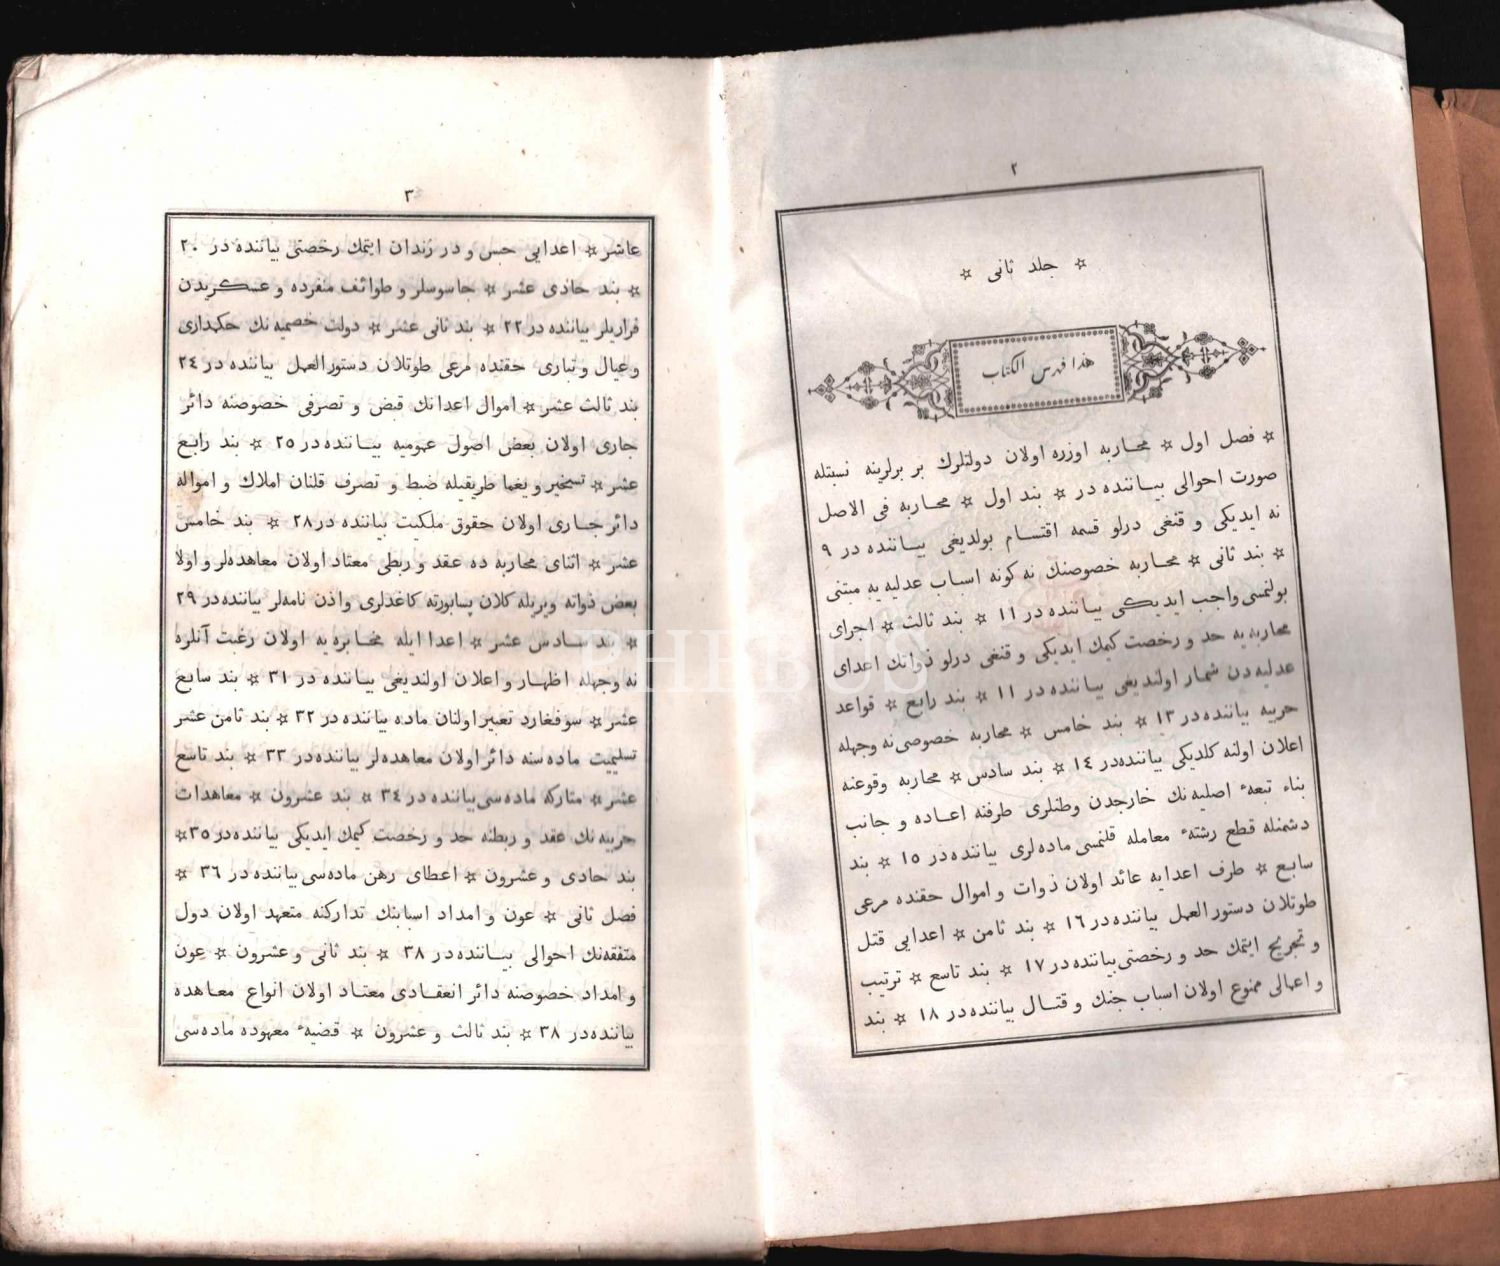 ٢
☆ جلد ثانی ☆
هذا فهرس الکتاب
☆ فصل اول ☆ محاربه اوزره اولان دولتلرك بر برلرینه نسبتله
صورت احوالی بیاننده در ☆ بند اول ☆ محاربه فی الاصل
نه ایدیکی و قنغی درلو قسمه اقتسام بولدیغی بیاننده در ٩
☆ بند ثانی ☆ محاربه خصوصنك نه کونه اسباب عدلیه یه مبتنی
بولنمسی واجب ایدیکی بیاننده در ١١ ☆ بند ثالث ☆ اجرای
محاربه یه حد و رخصت کیمك ایدیکی و قنغی درلو ذواتك اعدای
عدلیه دن شمار اولندیغی بیاننده در ١١ ☆ بند رابع ☆ قواعد
حربیه بیاننده در ١٣ ☆ بند خامس ☆ محاربه خصوصی نه وجهله
اعلان اولنه کلدیکی بیاننده در ١٤ ☆ بند سادس ☆ محاربه وقوعنه
بناء تبعهٔ اصلیه نك خارجدن وطنلری طرفنه اعاده و جانب
دشمنله قطع رشتهٔ معامله قلنمسی ماده لری بیاننده در ١٥ ☆ بند
سابع ☆ طرف اعدایه عائد اولان ذوات و اموال حقنده مرعی
طوتلان دستور العمل بیاننده در ١٦ ☆ بند ثامن ☆ اعدایی قتل
و تجریح ایتمك حد و رخصتی بیاننده در ١٧ ☆ بند تاسع ☆ ترتیب
و اعمالی ممنوع اولان اسباب جنك و قتال بیاننده در ١٨ ☆ بند
٣
عاشر ☆ اعدایی حبس و در زندان ایتمك رخصتی بیاننده در ٢٠
☆ بند حادی عشر ☆ جاسوسلر و طوائف منفرده و عسکریدن
فراریلر بیاننده در ٢٢ ☆ بند ثانی عشر ☆ دولت خصمیه نك حکمداری
و عیال و تباری حقنده مرعی طوتلان دستورالعمل بیاننده در ٢٤
بند ثالث عشر ☆ اموال اعدانك قبض و تصرفی خصوصنه دائر
جاری اولان بعض اصول عمومیه بیاننده در ٢٥ ☆ بند رابع
عشر ☆ تسخیر و یغما طریقیله ضبط و تصرف قلنان املاك و امواله
دائر جاری اولان حقوق ملکیت بیاننده در ٢٨ ☆ بند خامس
عشر ☆ اثنای محاربه ده عقد و ربطی معتاد اولان معاهده لر و اولا
بعض ذواته ویریله کلان پسابورته کاغدلری و اذن نامه لر بیاننده در ٢٩
☆ بند سادس عشر ☆ اعدا ایله مخابره یه اولان رغبت آنلره
نه وجهله اظهار و اعلان اولندیغی بیاننده در ٣١ ☆ بند سابع
عشر ☆ سوفغارد تعبیر اولنان ماده بیاننده در ٣٢ ☆ بند ثامن عشر
تسلیمیت ماده سنه دائر اولان معاهده لر بیاننده در ٣٣ ☆ بند تاسع
عشر ☆ متارکه ماده سی بیاننده در ٣٤ ☆ بند عشرون ☆ معاهدات
حربیه نك عقد و ربطنه حد و رخصت کیمك ایدیکی بیاننده در ٣٥ ☆
بند حادی و عشرون ☆ اعطای رهن ماده سی بیاننده در ٣٦ ☆
فصل ثانی ☆ عون و امداد اسبابنك تدارکنه متعهد اولان دول
متفقه نك احوالی بیاننده در ٣٨ ☆ بند ثانی و عشرون ☆ عون
و امداد خصوصنه دائر انعقادی معتاد اولان انواع معاهده
بیاننده در ٣٨ ☆ بند ثالث و عشرون ☆ قضیهٔ معهوده ماده سی
PHEBUS